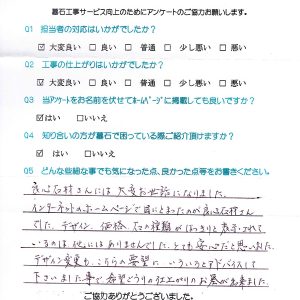 墓石工事サービス向上のためにアンケートのご協力お願いします。
Q1 担当者の対応はいかがでしたか?
☑ 大変良い □ 良い □ 普通 □ 少し悪い □ 悪い
Q2 工事の仕上がりはいかがでしたか?
☑ 大変良い □ 良い □ 普通 □ 少し悪い □ 悪い
Q3 当アンケートをお名前を伏せてホームページに掲載しても良いですか?
☑ はい □ いいえ
Q4 知り合いの方が墓石で困っている際ご紹介頂けますか?
☑ はい □ いいえ
Q5 どんな些細な事でも気になった点、良かった点等をお書きください。
良心石材さんには大変お世話になりました。
インターネットのホームページで目にとまったのが良心石材さん
でした。デザイン、価格、石の種類がはっきりと表示されて
いるのは他にはありませんでした。とても安心だと思いました。
デザイン変更も、こちらの希望に いろいろとアドバイスして
下さいました事で希望どうりの仕上がりのお墓が出来ました。
ご協力ありがとうございました。